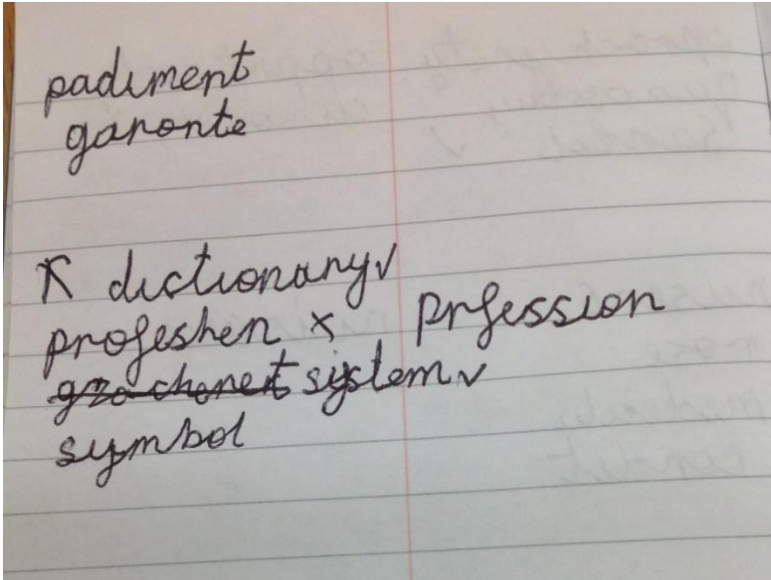 padiment
garonte
dictionary✓
profeshen × prfession
system✓
symbol